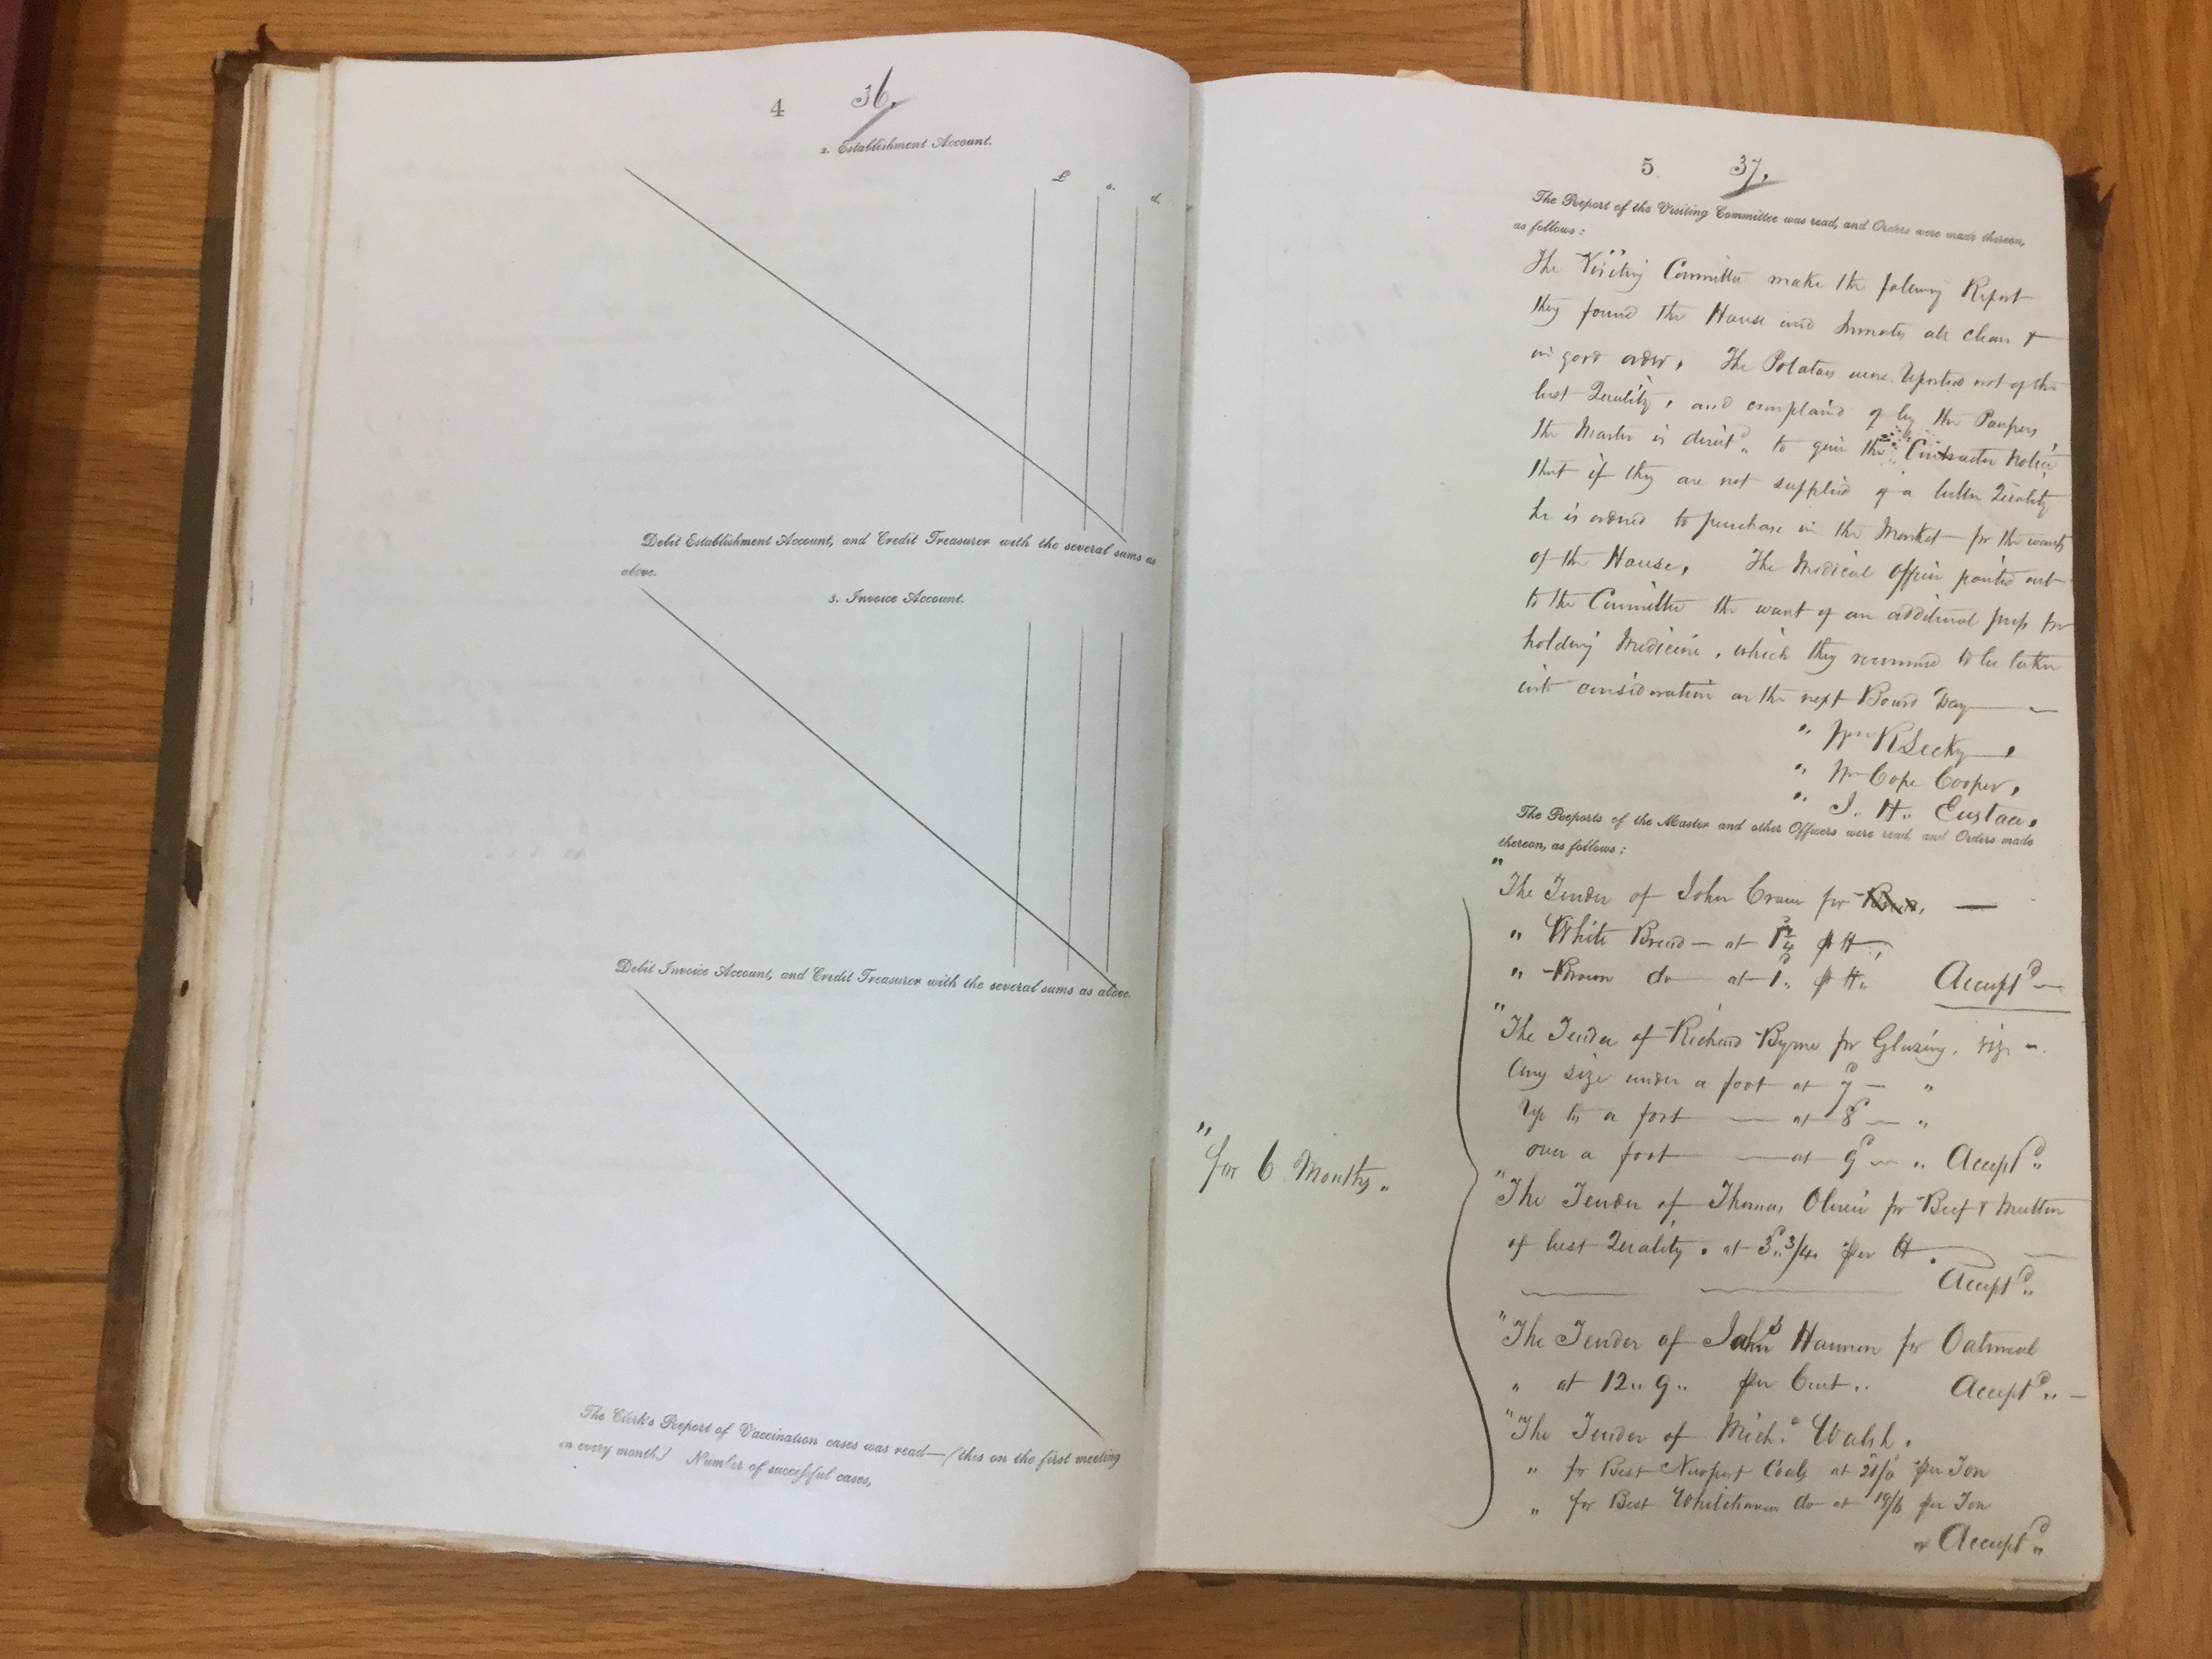 4 36.
2. Establishment Account.
£ s. d.
Debit Establishment Account, and Credit Treasurer with the several sums as
above.
3. Invoice Account.
Debit Invoice Account, and Credit Treasurer with the several sums as above.
The Clerk's Report of Vaccination cases was read—(this on the first meeting
in every month) Number of successful cases,
5 37.
The Report of the Visiting Committee was read, and Orders were made thereon,
as follows:
The Visiting Committee make the following Report
they found the House and Inmates all clean &
in good order, The Potatoes were reported not of the
best Quality, and complaind of by the Paupers
the Master is direct.d to give the Contractor Notice
that if they are not supplied of a better Quality
he is ordered to purchase in the Market for the wants
of the House, The Medical Officer pointed out
to the Committee the want of an additional press for
holding Medicine, which they recommend to be taken
into consideration on the next Board Day —
" Wm R Lecky,
" Wm Cope Cooper,
" J.. H.. Eustace.
The Reports of the Master and other Officers were read, and Orders made
thereon, as follows:
"The Tender of John Crowe for —
" White Bread — at 1 1/4 d ℔,
" Brown do at 1d.. ℔.. Accept.d —
"The Tender of Richard Byrne for Glazing, viz —
Any size under a foot at 7d — "
Up to a foot — at 8d — "
over a foot — at 9d — " Accept.d
"for 6 Months..
"The Tender of Thomas Oliver for Beef & Mutton
of best Quality, at 3d.. 3/4. per ℔.
Accept.d
"The Tender of Hannon for Oatmeal
" at 12.. 9.. per Cwt.. Accept.d —
"The Tender of Mich.l Walsh.
" for Best Newport Coals at per Ton
" for Best Whitehaven do at 19/6 per Ton
" Accept.d